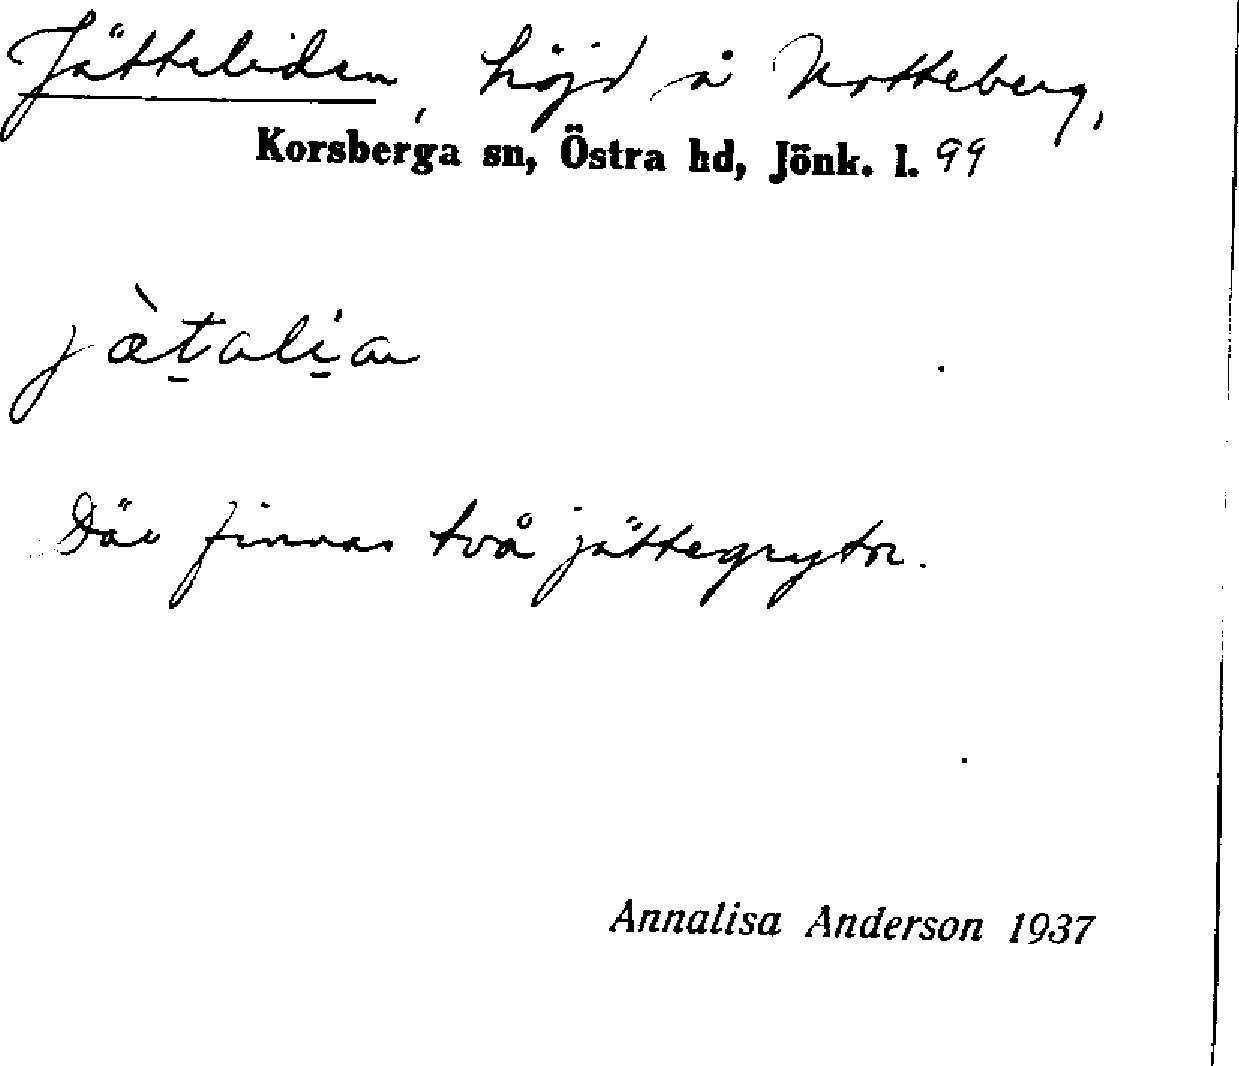 Jätteliden, höjd å Notteberg,
Korsberga sn, Östra hd, Jönk. l. 99
jæ̀t̠ali̠an
Där finnas två jättegrytor.
Annalisa Anderson 1937